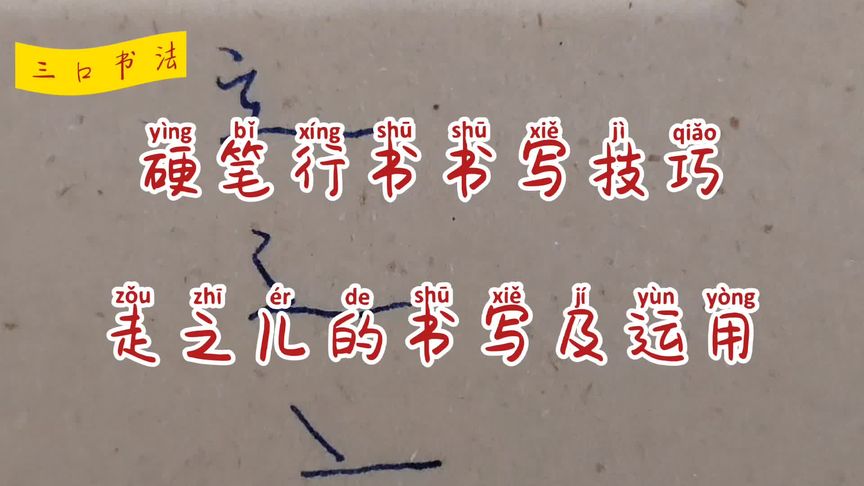 三口书法
yìng bǐ xíng shū shū xiě jì qiǎo
硬笔行书书写技巧
zǒu zhī ér de shū xiě jí yùn yòng
走之儿的书写及运用